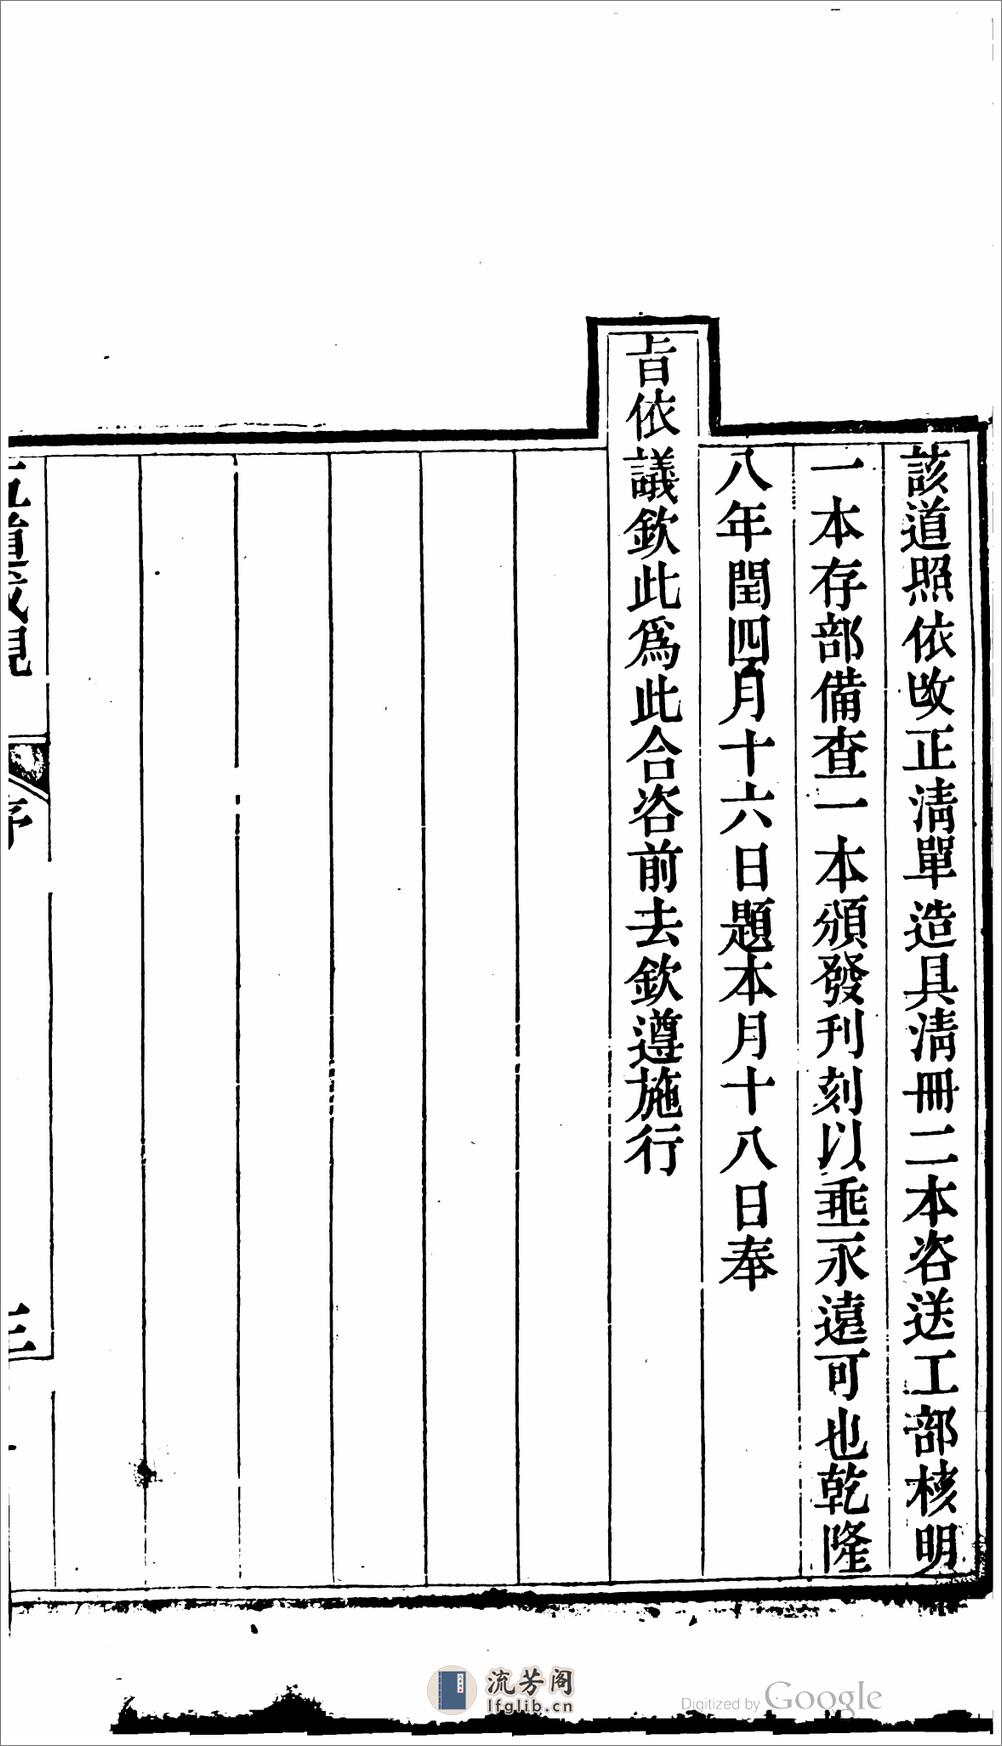 該道照依改正淸單造具淸冊二本咨送工部核明
一本存部備查一本頒發刊刻以垂永遠可也乾隆
八年閏四月十六日題本月十八日奉
旨依議欽此爲此合咨前去欽遵施行
序
三
流芳阁
lfglib.cn
Digitized by Google